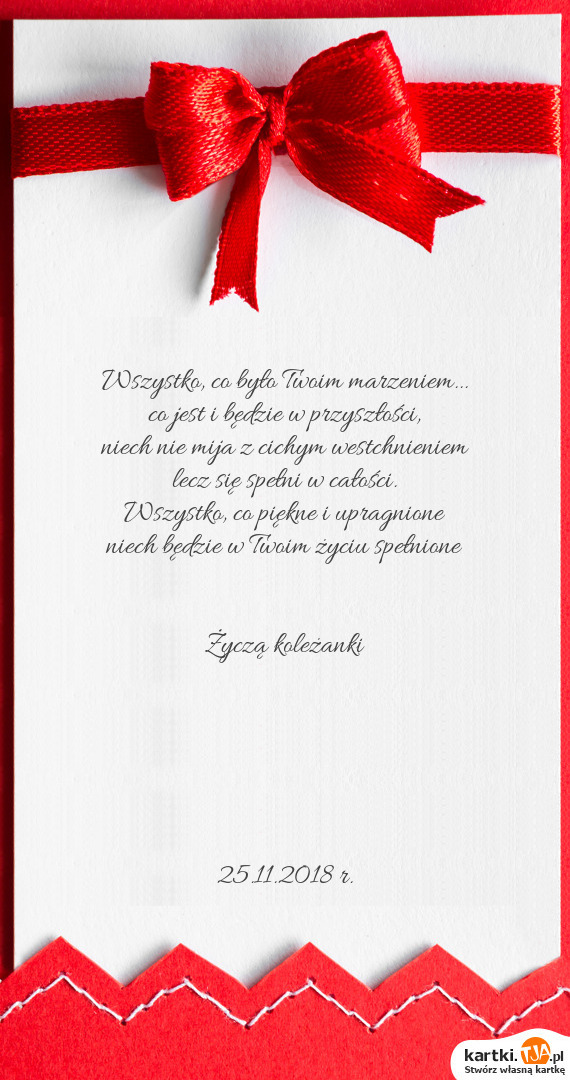 Wszystko, co było Twoim marzeniem...
co jest i będzie w przyszłości,
niech nie mija z cichym westchnieniem
lecz się spełni w całości.
Wszystko, co piękne i upragnione
niech będzie w Twoim życiu spełnione
Życzą koleżanki
25.11.2018 r.
kartki.TJA.pl
Stwórz własną kartkę